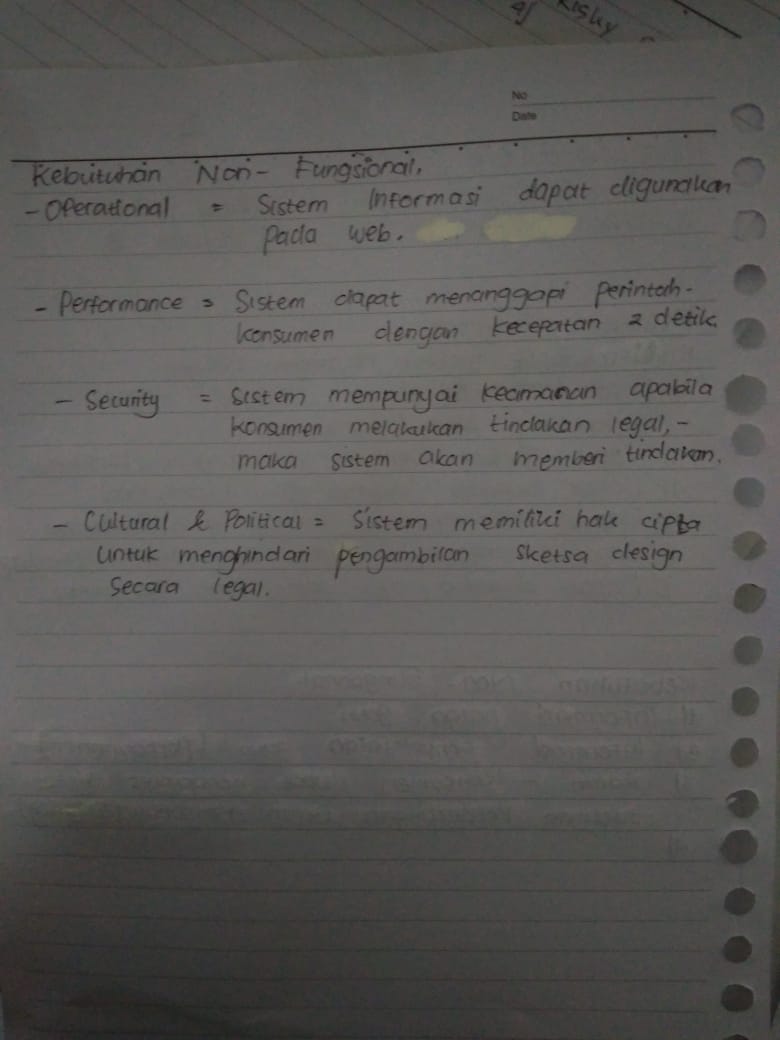 Risky
No
Date
Kebutuhan Non-Fungsional.
- Operational = Sistem Informasi dapat digunakan
pada web.
- Performance = Sistem dapat menanggapi perintah-
konsumen dengan kecepatan 2 detik.
- Security = Sistem mempunyai keamanan apabila
konsumen melakukan tindakan legal,-
maka sistem akan memberi tindakan.
- Cultural & Political = Sistem memiliki hak cipta
untuk menghindari pengambilan sketsa design
secara legal.